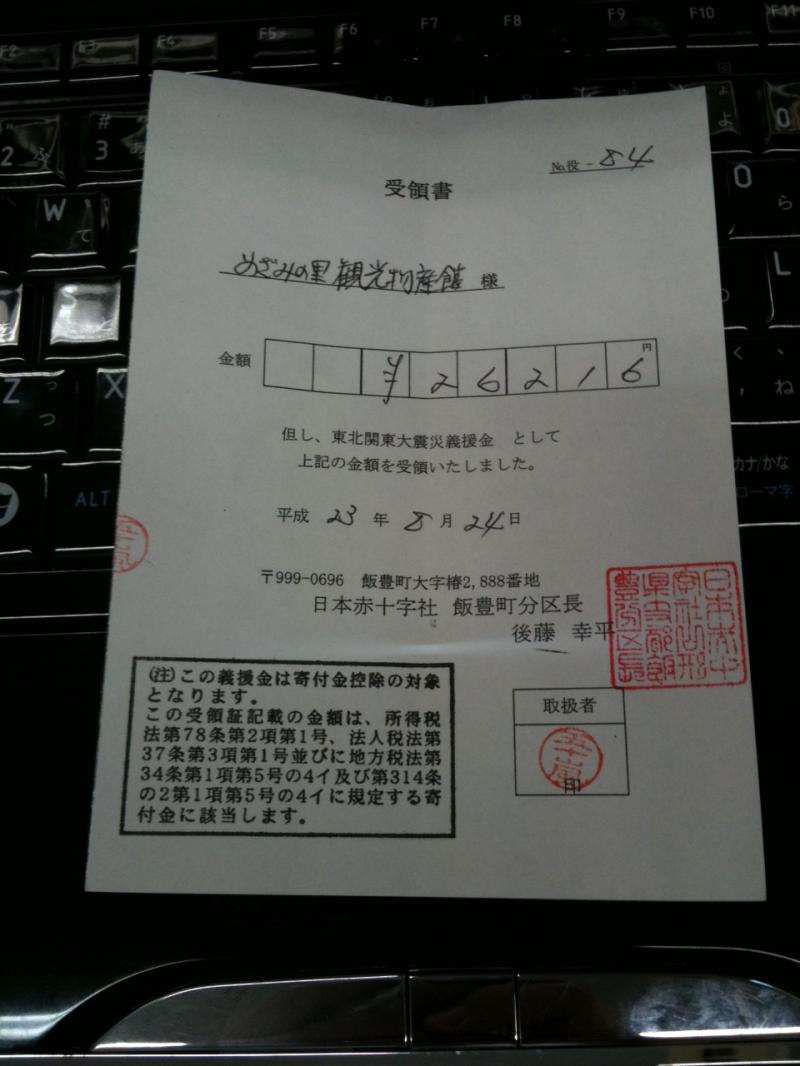 F2 F3 F4 F5 F6 F7 F8 F9 F10 F11
№役-84
受領書
めざみの里観光物産館 様
金額 ¥26216円
但し、東北関東大震災義援金 として
上記の金額を受領いたしました。
平成 23 年 8 月 24 日
〒999-0696 飯豊町大字椿2,888番地
日本赤十字社 飯豊町分区長
後藤 幸平
(注)この義援金は寄付金控除の対象
となります。
この受領証記載の金額は、所得税
法第78条第2項第1号、法人税法第
37条第3項第1号並びに地方税法第
34条第1項第5号の4イ及び第314条
の2第1項第5号の4イに規定する寄
付金に該当します。
取扱者
印
#
3
2 ふ
W
て
S
Z
っ
つ
X
ALT
O
ら
L
ね
カナ/かな
ローマ字